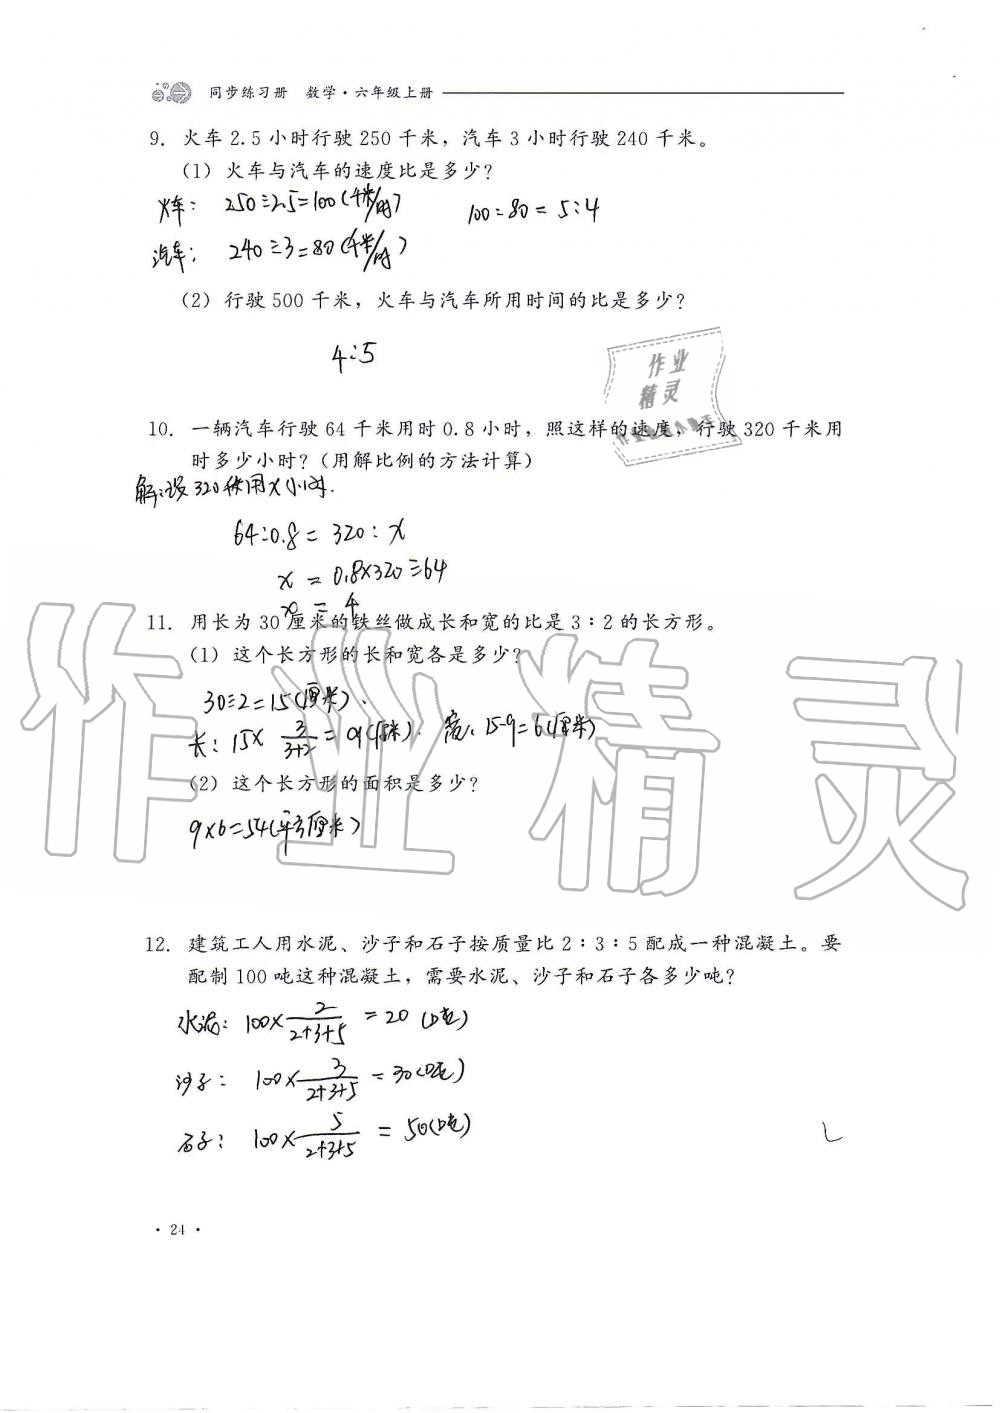 同步练习册 数学·六年级上册
9. 火车 2.5 小时行驶 250 千米，汽车 3 小时行驶 240 千米。
(1) 火车与汽车的速度比是多少?
火车: 250÷2.5=100(千米/时) 100:80=5:4
汽车: 240÷3=80(千米/时)
(2) 行驶 500 千米，火车与汽车所用时间的比是多少?
4:5
作业
精灵
10. 一辆汽车行驶 64 千米用时 0.8 小时，照这样的速度，行驶 320 千米用
时多少小时?（用解比例的方法计算）
解:设320千米用x小时.
64:0.8=320:x
x=0.8×320÷64
x=4
11. 用长为 30 厘米的铁丝做成长和宽的比是 3∶2 的长方形。
(1) 这个长方形的长和宽各是多少?
30÷2=15(厘米).
长: 15× 3/3+2 =9(厘米). 宽: 15-9=6(厘米)
(2) 这个长方形的面积是多少?
9×6=54(平方厘米)
作业精灵
12. 建筑工人用水泥、沙子和石子按质量比 2∶3∶5 配成一种混凝土。要
配制 100 吨这种混凝土，需要水泥、沙子和石子各多少吨?
水泥: 100× 2/2+3+5 =20(吨)
沙子: 100× 3/2+3+5 =30(吨)
石子: 100× 5/2+3+5 =50(吨)
· 24 ·